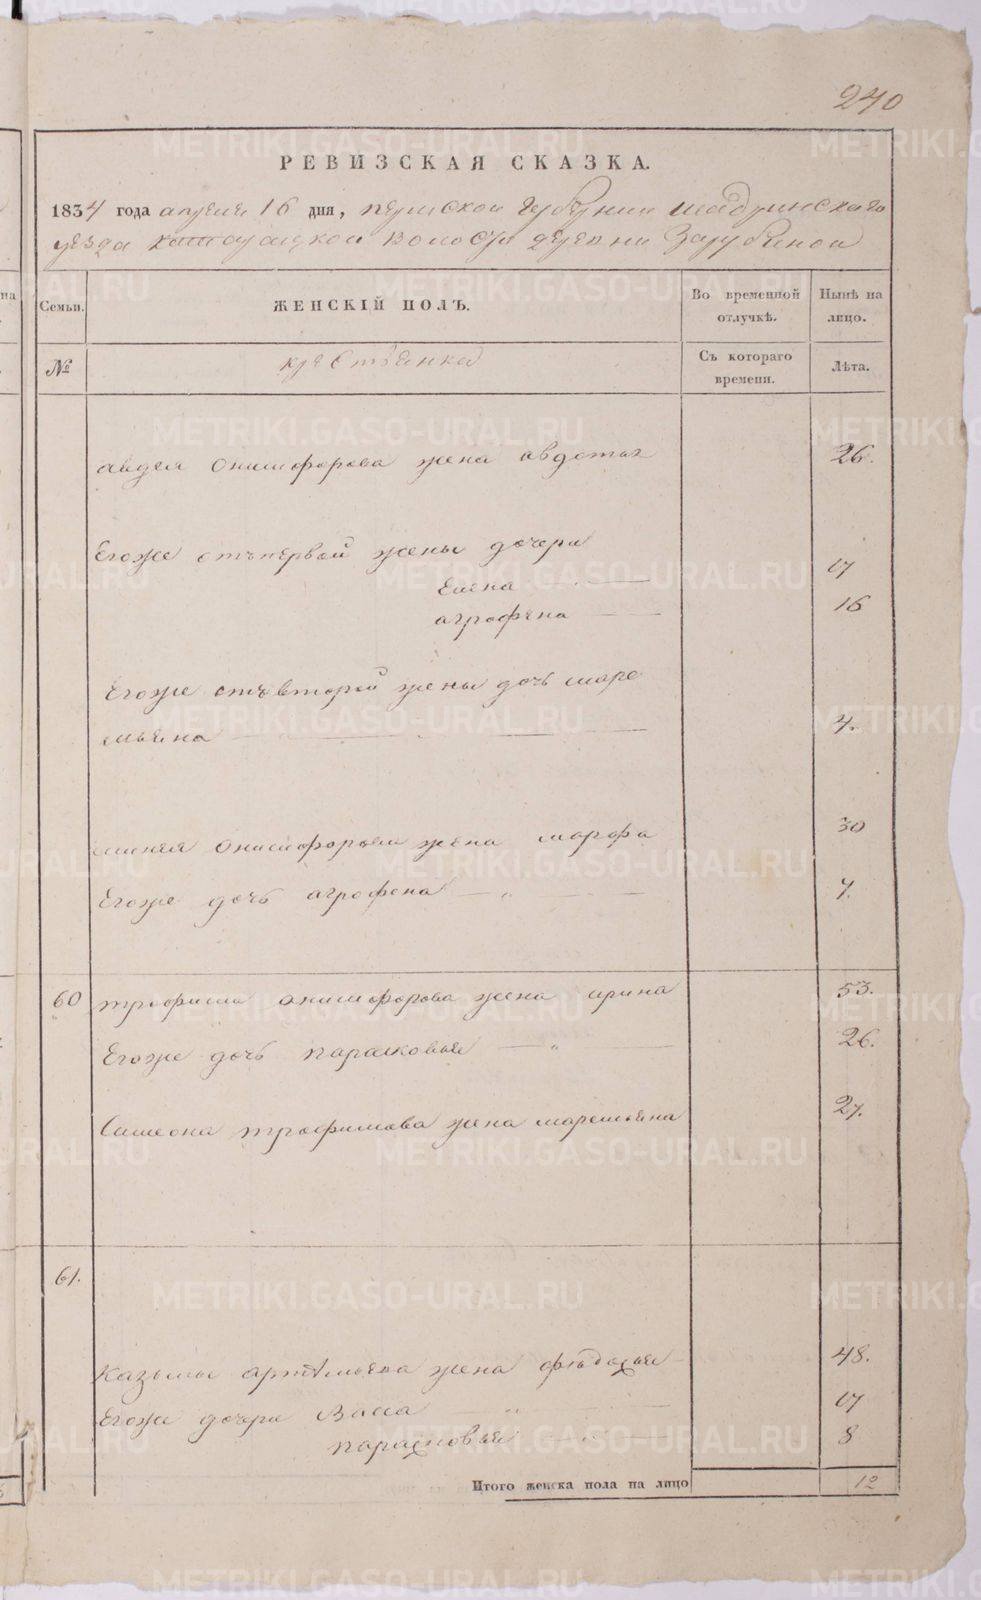 240
РЕВИЗСКАЯ СКАЗКА.
1834 года апреля 16 дня, пермской губернии шадринскаго
уезда волости деревни Зарубиной
Семьи.
ЖЕНСКІЙ ПОЛЪ.
Во временной отлучкѣ.
Нынѣ на лицо.
№
крестьянка
Съ котораго времени.
Лѣта.
авдея Онисифорова жена авдотья 26.
Егоже отъ первой жены дочери
Елена 17
агрофена 16
Егоже отъ второй жены дочь маре
мьяна 4.
Онисифорова жена марфа 30
Егоже дочь агрофена 7.
60 трофима анисифорова жена ирина 53.
Егоже дочь парасковья 26.
Симеона трофимова жена маремьяна 27.
61.
Казьмы артемьева жена 48.
Егоже дочери Васса 17
парасковья 8
Итого женска пола на лицо 12
METRIKI.GASO-URAL.RU